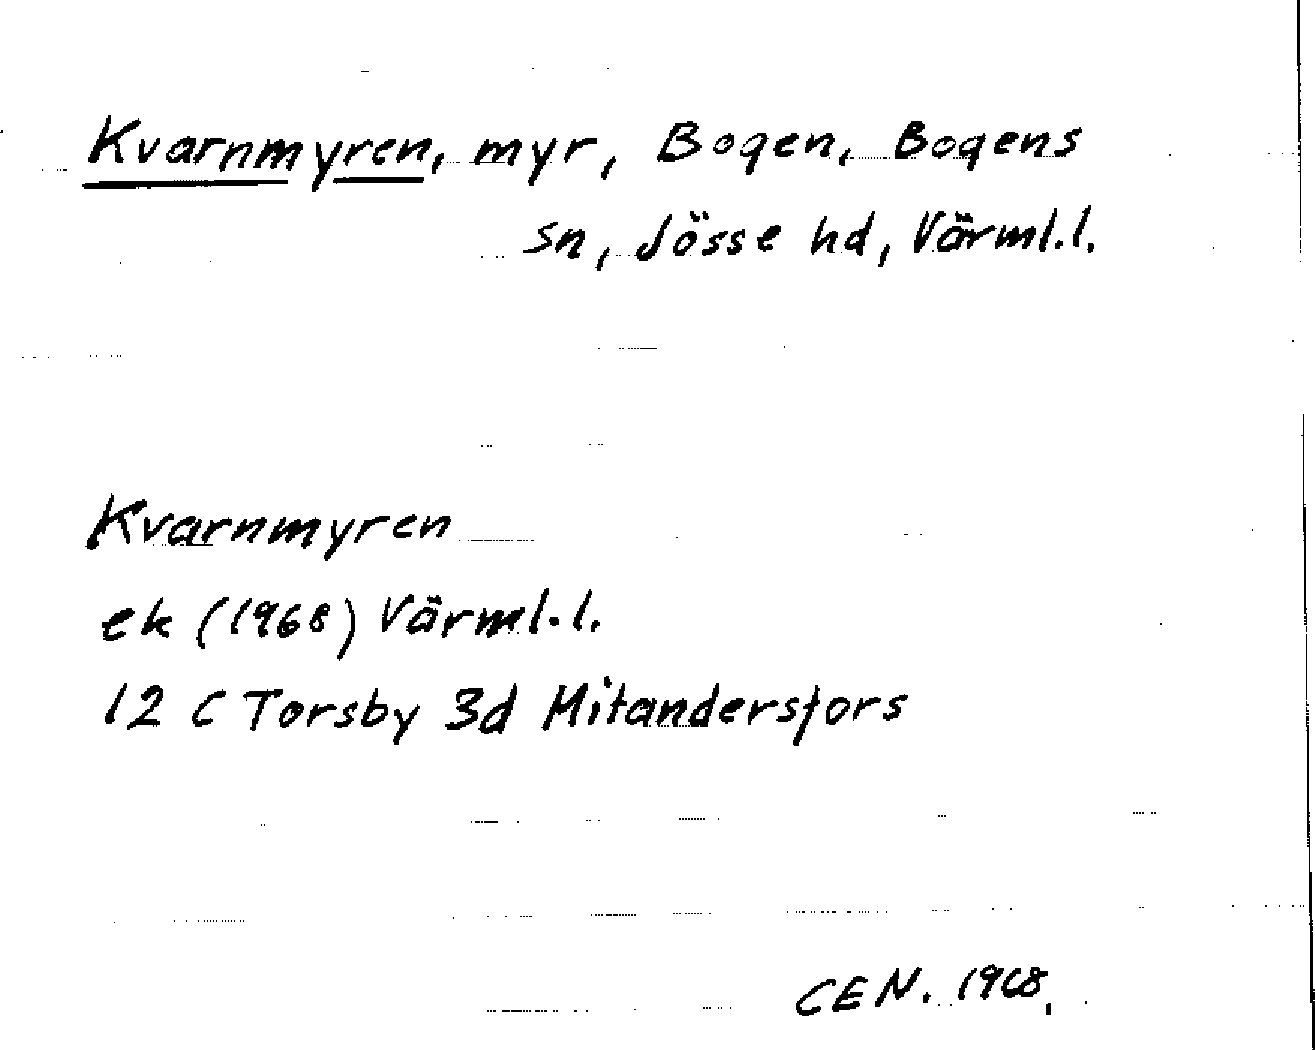 Kvarnmyren, myr, Bogen, Bogens
sn, Jösse hd, Värml.l.
Kvarnmyren
ek (1968) Värml.l.
12 C Torsby 3d Mitandersfors
CEN. 1968.